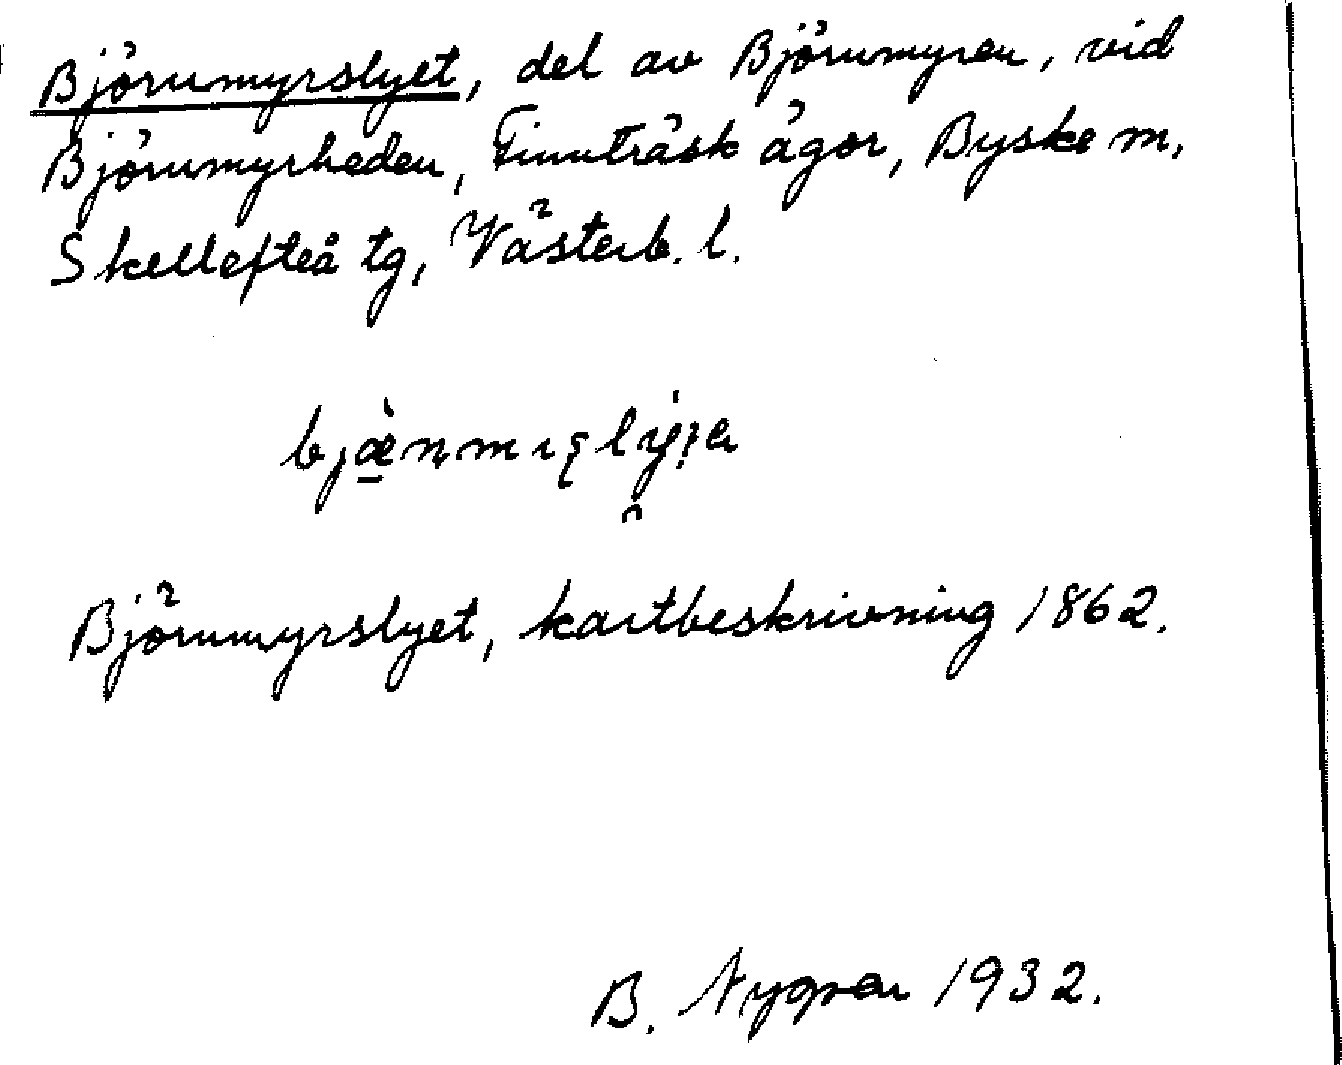 Björnmyrslyet, del av Björnmyren, vid
Björnmyrheden, Finnträsk ägor, Byske m,
Skellefteå tg, Västerb. l.
Björnmyrslyet, kartbeskrivning 1862.
B. Nygren 1932.